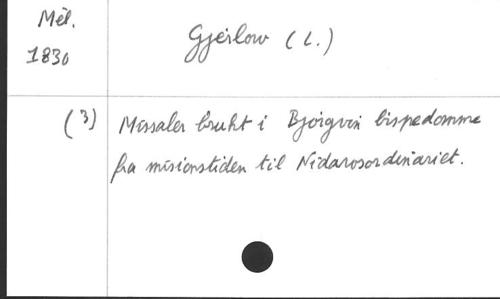 Mél.
1830
Gjerlow (L.)
(3) Missaler brukt i Bjorgvin bispedomme
fra misionstiden til Nidarosordinariet.